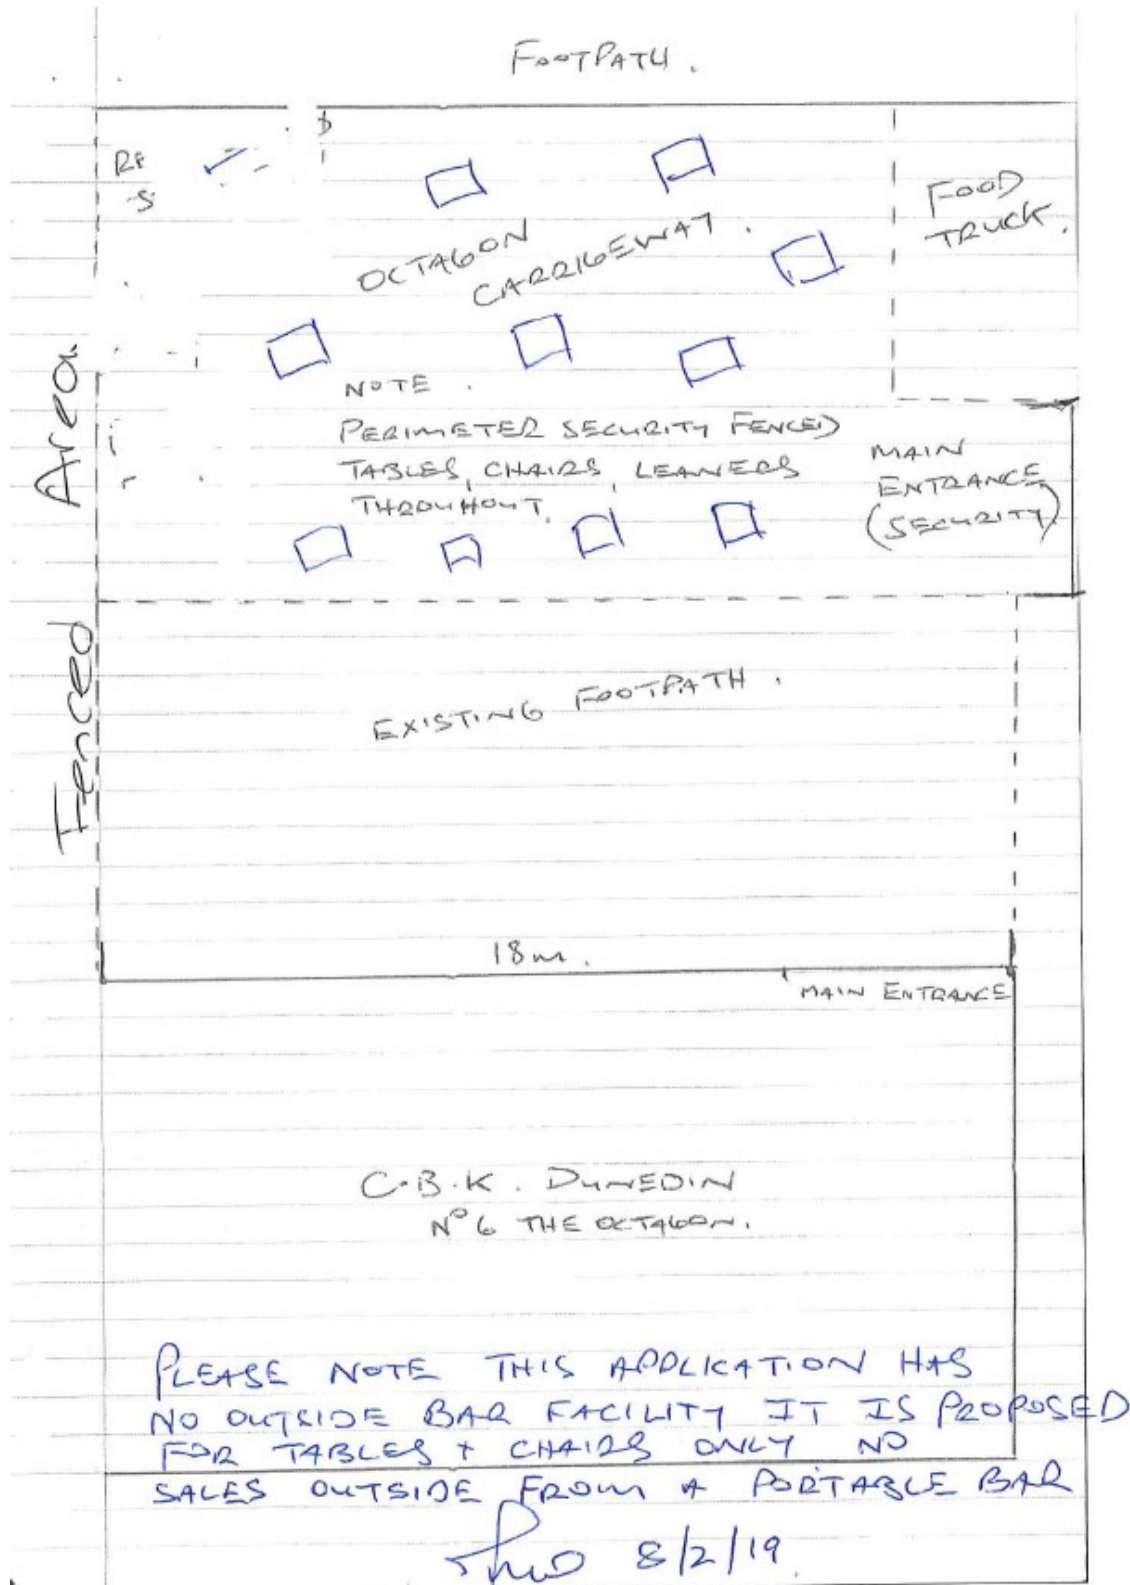 FOOTPATH.
FOOD
TRUCK.
OCTAGON
CARRIGEWAY.
NOTE.
PERIMETER SECURITY FENCED
TABLES, CHAIRS, LEANERS
THROUHOUT.
MAIN
ENTRANCE
(SECURITY)
Fenced Area
EXISTING FOOTPATH.
18m.
MAIN ENTRANCE
C.B.K. DUNEDIN
Nº 6 THE OCTAGON.
PLEASE NOTE THIS APPLICATION HAS
NO OUTSIDE BAR FACILITY IT IS PROPOSED
FOR TABLES + CHAIRS ONLY NO
SALES OUTSIDE FROM A PORTABLE BAR
8/2/19